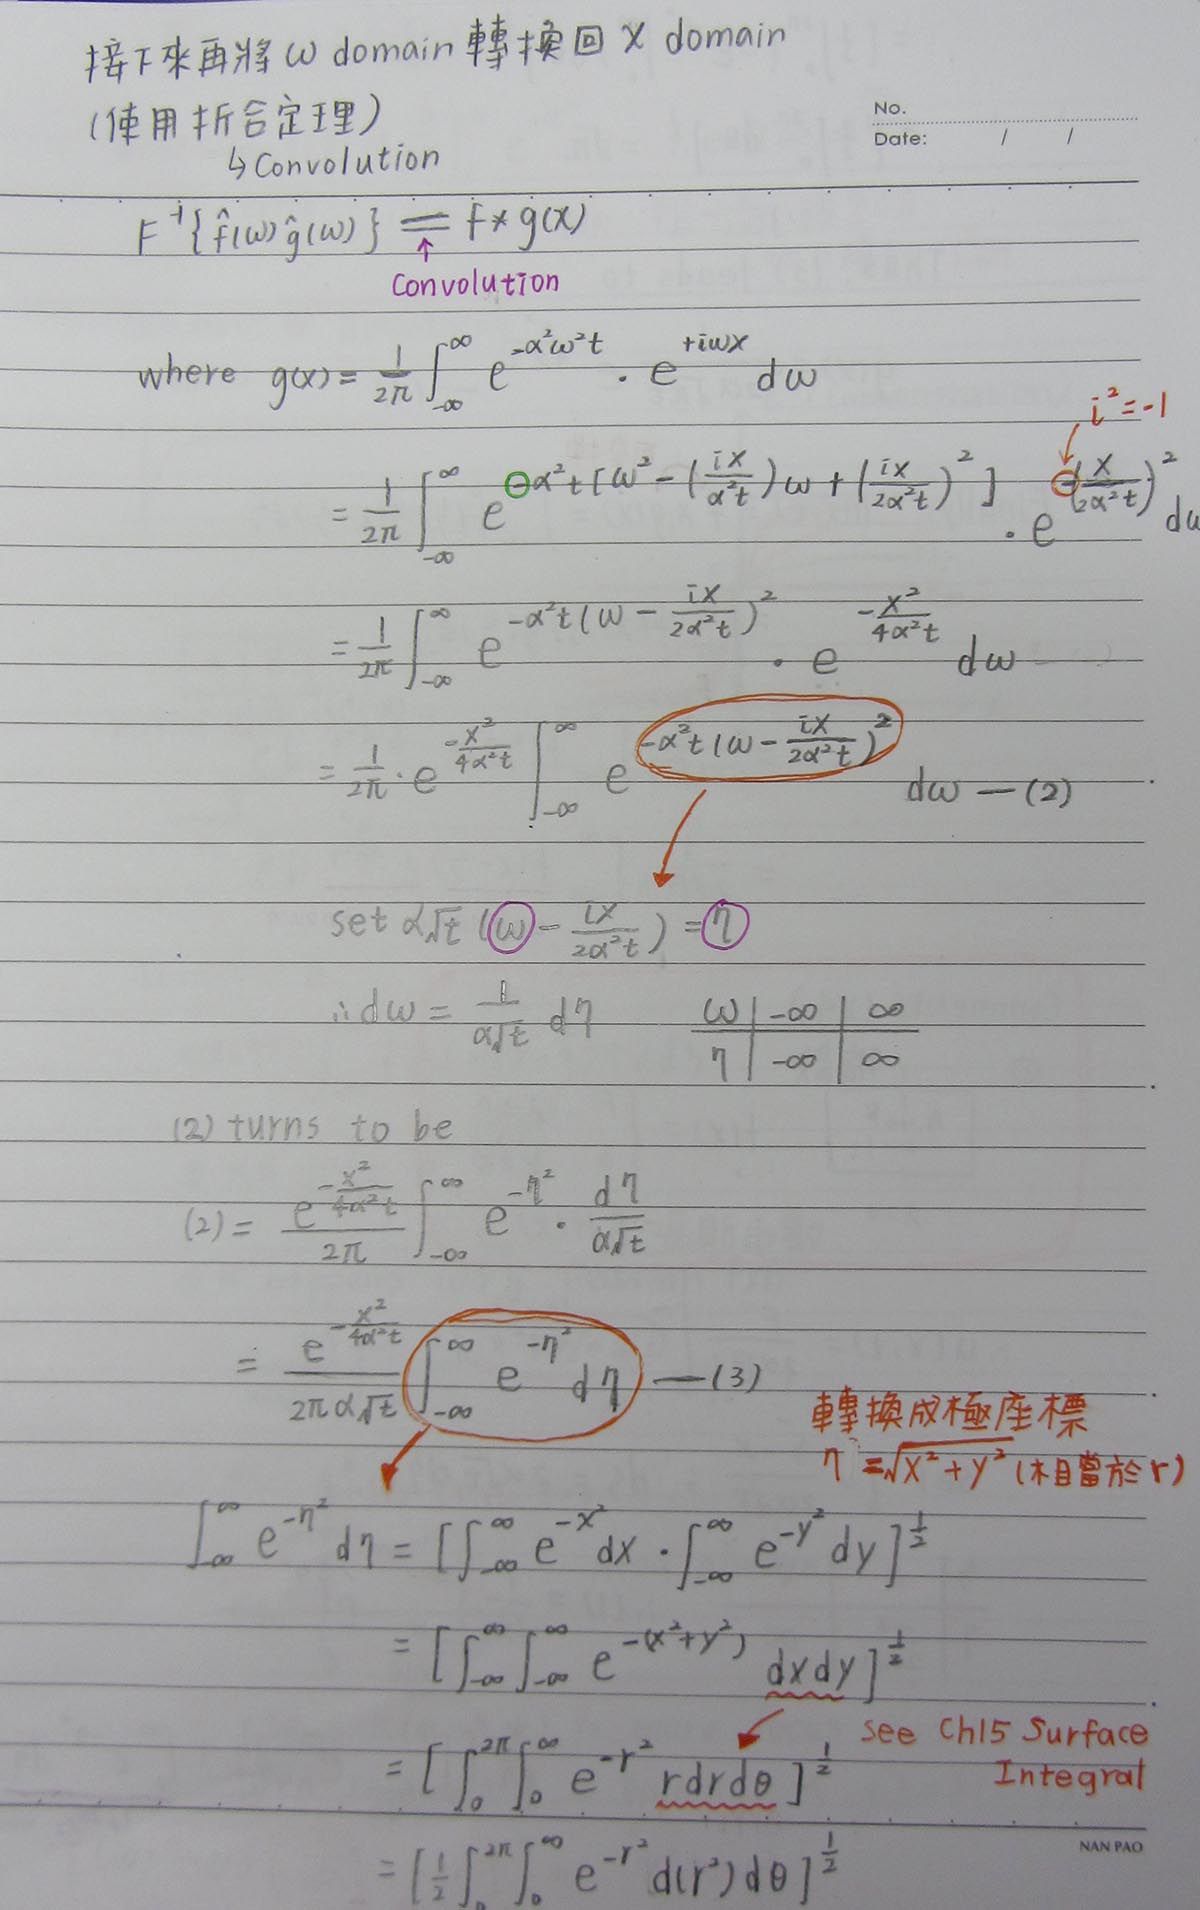 接下來再將 ω domain 轉換回 X domain
(使用折合定理)
↳ Convolution
No.
Date: / /
F⁻¹{f̂(ω)ĝ(ω)} = f * g(x)
↑
Convolution
where g(x) = 1/2π ∫_{-∞}^{∞} e^{-α²ω²t} · e^{+iωx} dω
i² = -1
= 1/2π ∫_{-∞}^{∞} e^{-α²t[ω² - (ix/α²t)ω + (ix/2α²t)²]} · e^{-(x/2α²t)²} dω
= 1/2π ∫_{-∞}^{∞} e^{-α²t(ω - ix/2α²t)²} · e^{-x²/4α²t} dω
= 1/2π · e^{-x²/4α²t} ∫_{-∞}^{∞} e^{-α²t(ω - ix/2α²t)²} dω — (2)
set α√t (ω - ix/2α²t) = η
∴ dω = 1/α√t dη
ω | -∞ | ∞
η | -∞ | ∞
(2) turns to be
(2) = e^{-x²/4α²t}/2π ∫_{-∞}^{∞} e^{-η²} · dη/α√t
= e^{-x²/4α²t}/2πα√t ∫_{-∞}^{∞} e^{-η²} dη — (3)
轉換成極座標
η = √x²+y² (相當於 r)
∫_{-∞}^{∞} e^{-η²} dη = [∫_{-∞}^{∞} e^{-x²} dx · ∫_{-∞}^{∞} e^{-y²} dy]^{1/2}
= [∫_{-∞}^{∞} ∫_{-∞}^{∞} e^{-(x²+y²)} dxdy]^{1/2}
see Ch15 Surface
Integral
= [∫_0^{2π} ∫_0^{∞} e^{-r²} rdrdθ]^{1/2}
NAN PAO
= [1/2 ∫_0^{2π} ∫_0^{∞} e^{-r²} d(r²) dθ]^{1/2}